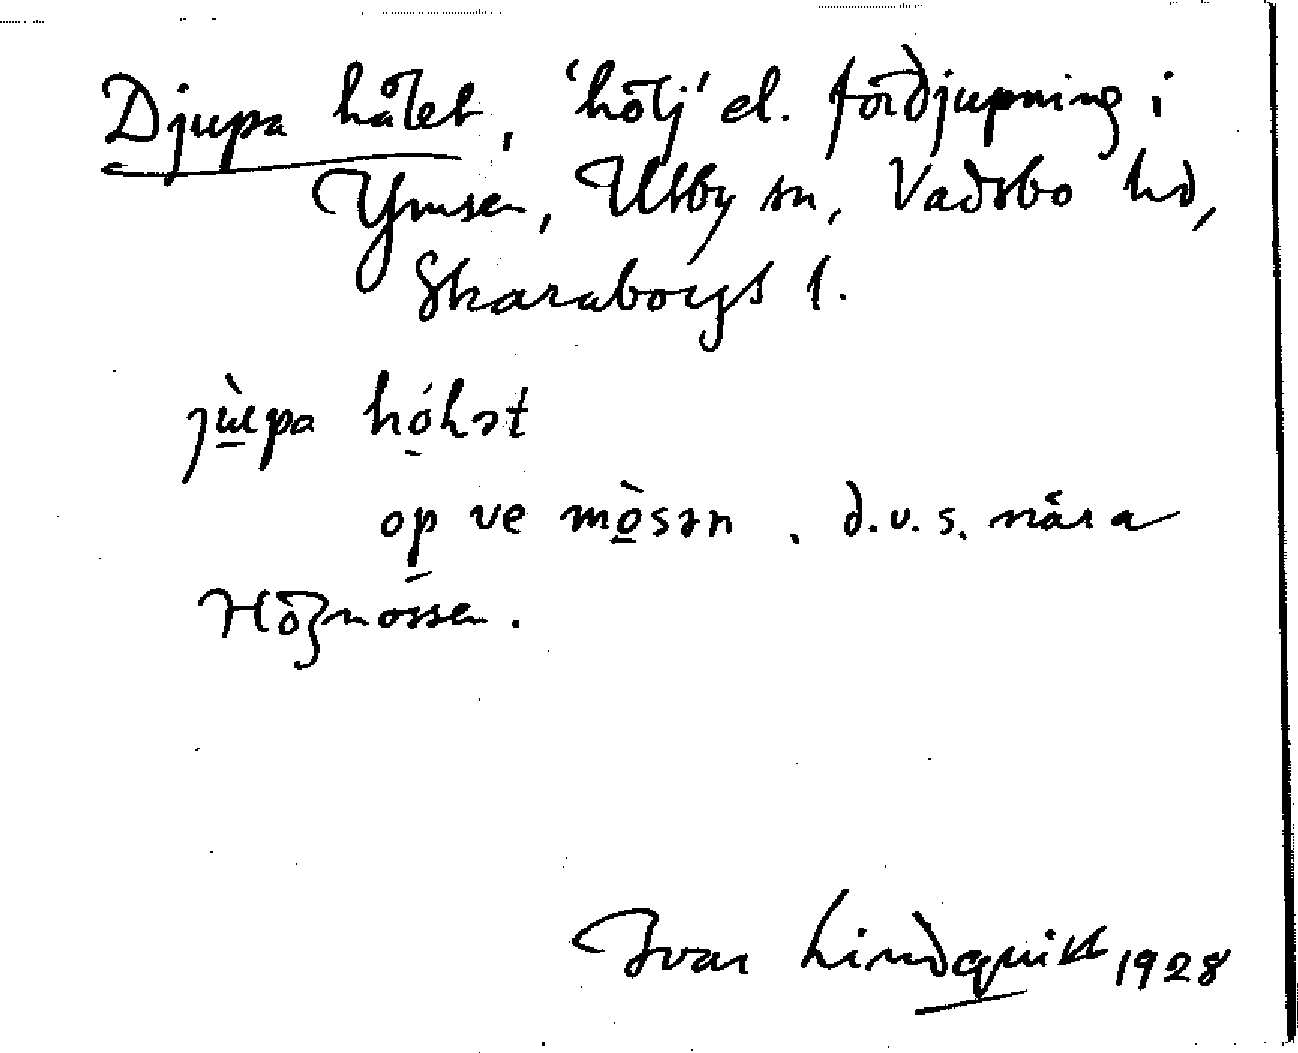 Djupa hålet, 'hölj' el. fördjupning i
Ymsen, Ullby sn, Vadsbo hd,
Skaraborgs l.
jùpa hóhət
op ve mòsən, d.v.s. nära
Högmossen.
Ivar Lindquist 1928